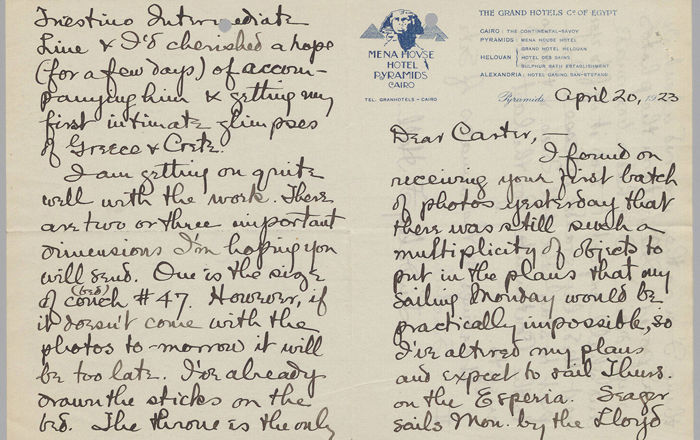 THE GRAND HOTELS Co. OF EGYPT
CAIRO: THE CONTINENTAL-SAVOY
PYRAMIDS: MENA HOUSE HOTEL
HELOUAN
GRAND HOTEL HELOUAN
HOTEL DES BAINS
SULPHUR BATH ESTABLISHMENT
ALEXANDRIA: HOTEL CASINO, SAN-STEFANO
MENA HOVSE
HOTEL
PYRAMIDS
CAIRO
TEL. GRANHOTELS - CAIRO
Pyramids, April 20, 1923
Dear Carter, —
I found on
receiving your first batch
of photos yesterday that
there was still such a
multiplicity of objects to
put in the plans that my
sailing Monday would be
practically impossible, so
I've altered my plans
and expect to sail Thurs.
on the Esperia. Seager
sails Mon. by the Lloyd
Triestino Intermediate
Line & I'd cherished a hope
(for a few days) of accom-
panying him & getting my
first intimate glimpses
of Greece & Crete.
I am getting on quite
well with the work. There
are two or three important
dimensions I'm hoping you
will send. One is the size
of (bed) couch #47. However, if
it doesn't come with the
photos to-morrow it will
be too late. I've already
drawn the sticks on the
bed. The throne is the only